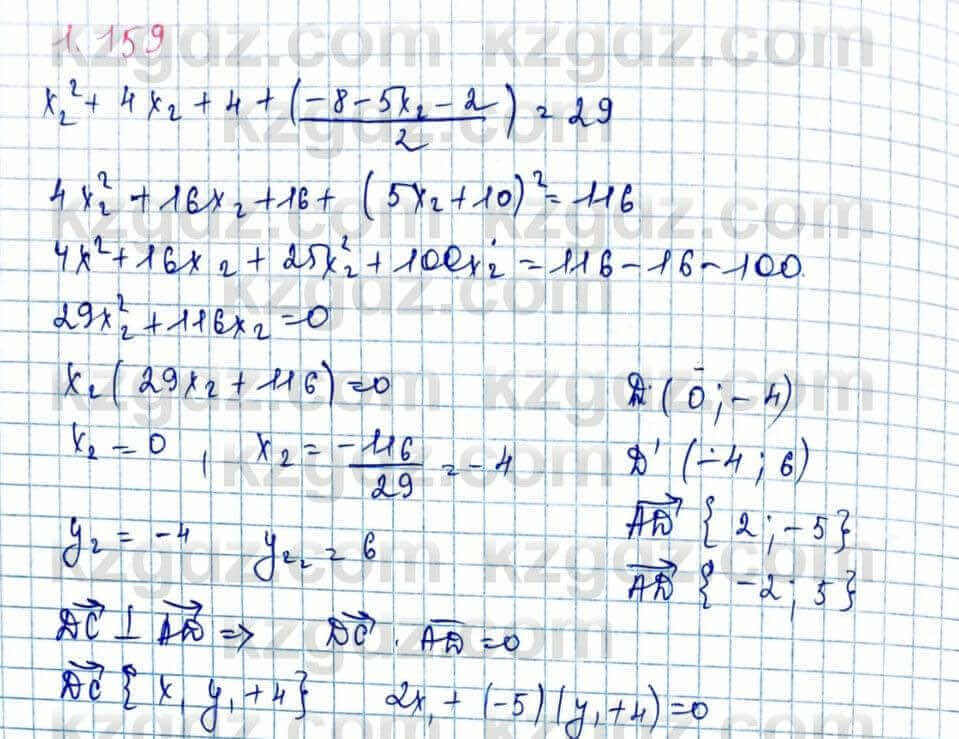 1.159
x₂² + 4x₂ + 4 + (\frac{-8-5x₂-2}{2}) = 29
4x₂² + 16x₂ + 16 + (5x₂+10)² = 116
4x² + 16x₂ + 25x₂² + 100x₂ = 116-16-100
29x₂² + 116x₂ = 0
x₂(29x₂ + 116) = 0
x₂ = 0, x₂ = \frac{-116}{29} = -4
y₂ = -4 y₂₂ = 6
D(0; -4)
D'(-4; 6)
\overrightarrow{AD} {2; -5}
\overrightarrow{AD} {-2; 5}
\overrightarrow{DC} ⊥ \overrightarrow{AD} => \overrightarrow{DC} · \overline{AD} = 0
\overrightarrow{DC} {x₁ y₁+4} 2x₁ + (-5)(y₁+4) = 0
kzgdz.com